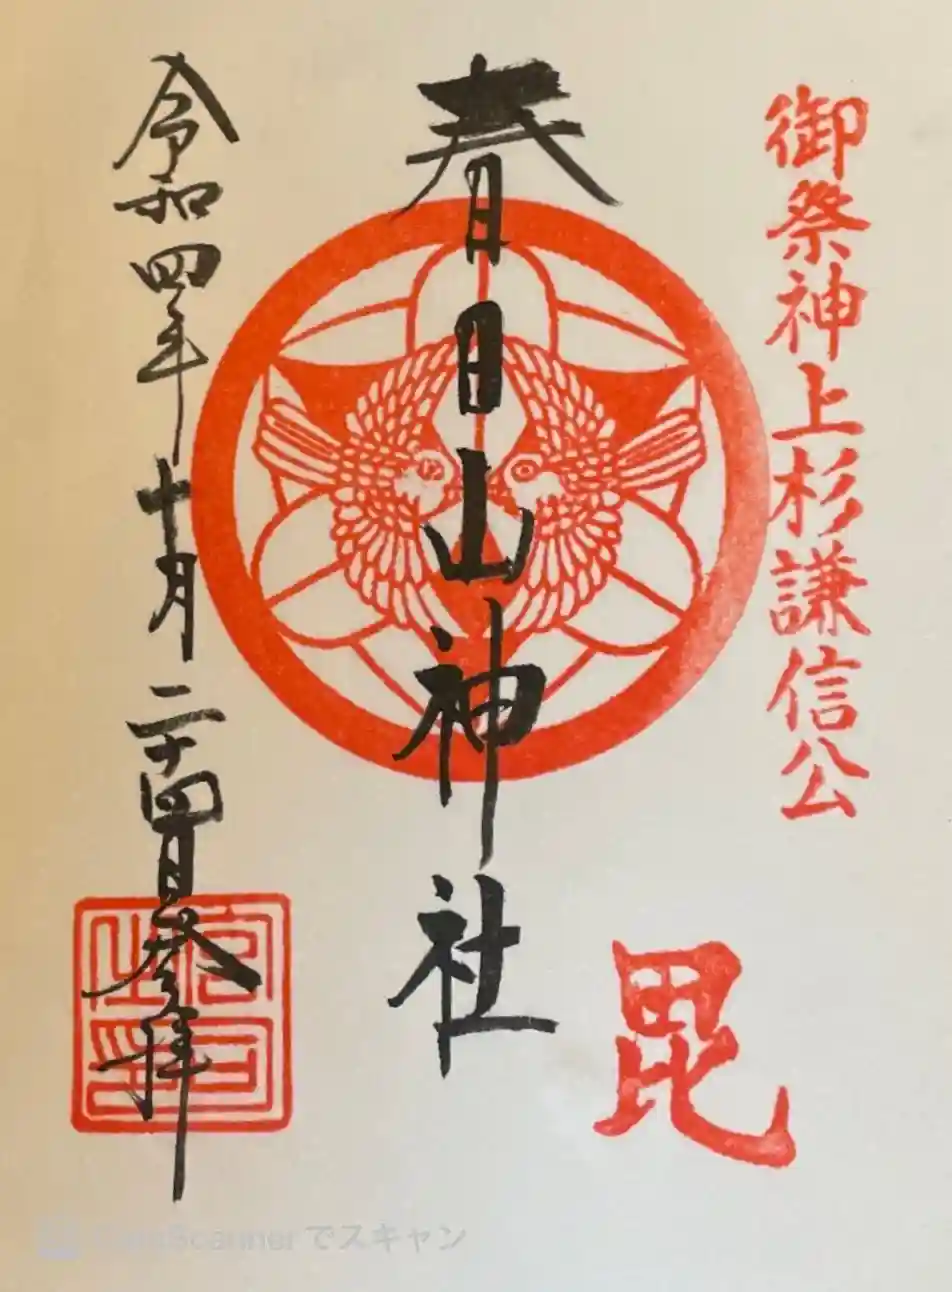 御祭神上杉謙信公
毘
春日山神社
令和四年十月二十四日参拝
Scannerでスキャン